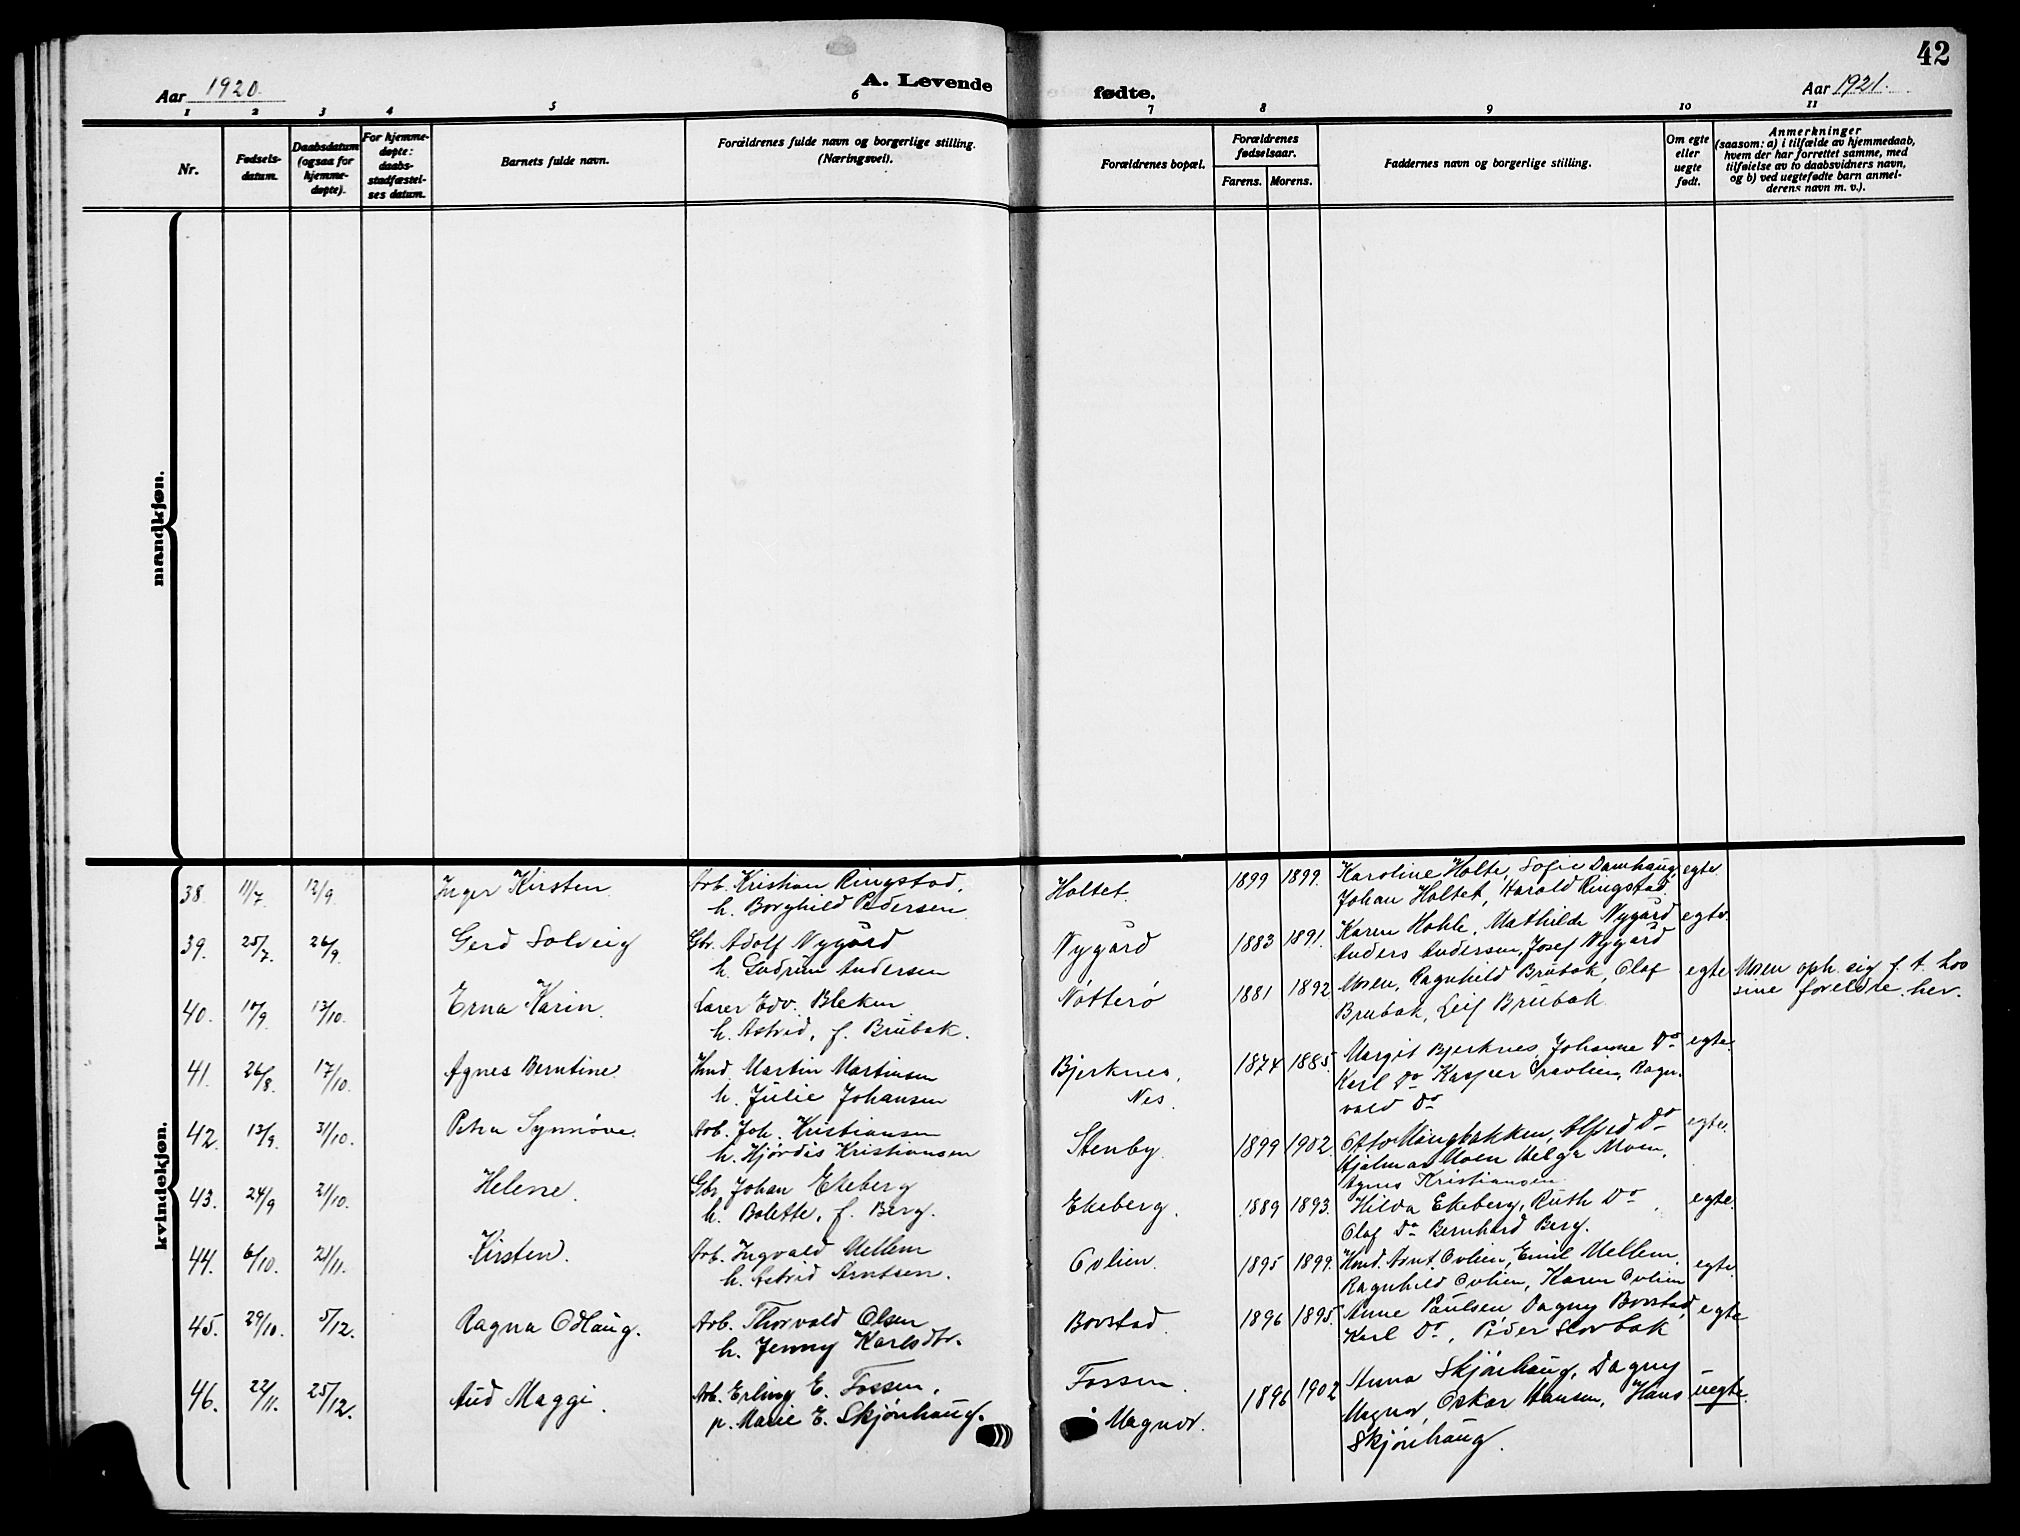 42
Aar 1920.
A. Levende
fødte.
Aar 1921.
1 2 3 4 5 6 7 8 9 10 11
Nr.
Fødsels-
datum.
Daabsdatum
(ogsaa for
hjemme-
døpte).
For hjemme-
døpte:
daabs-
stadfæstel-
ses datum.
Barnets fulde navn.
Forældrenes fulde navn og borgerlige stilling.
(Næringsvei).
Forældrenes bopæl.
Forældrenes
fødselsaar.
Farens. Morens.
Faddernes navn og borgerlige stilling.
Om egte
eller
uegte
født.
Anmerkninger
(saasom: a) i tilfælde av hjemmedaab,
hvem der har forrettet samme, med
tilføielse av to daabsvidners navn,
og b) ved uegtefødte barn anmel-
derens navn m. v.).
mandkjøn.
kvindekjøn.
38. 11/7 12/9. Inger Kirsten
Arb. Kristian Ringstad.
h. Borghild Pedersen
Holtet. 1899 1899.
Karoline Holte, Sofie Damhaug
Johan Holtet, Harald Ringstad
egte
39. 25/7. 26/9. Gerd Solveig
Gbr. Adolf Nygård
h. Gudrun Andersen
Nygård 1883 1891.
Karen Hohle, Mathilde Nygård
Anders Andersen, Josef Nygård
egte
40. 10/9. 13/10. Erna Karin.
Lærer Edv. Bleken
h. Astrid, f. Brubak.
Nøtterø 1881 1892
Moren, Ragnhild Brubak, Olaf
Brubak, Leif Brubak.
egte
Moren oph. sig f. t. hos
sine foreldre her.
41. 26/8. 17/10. Agnes Berntine
Hmd. Martin Martinsen
h. Julie Johansen
Bjerknes,
Nes.
1874 1885.
Margit Bjerknes, Johanne Do
Karl Do Kasper Ragn-
vald Do
egte.
42. 13/9. 31/10. Petra Synnøve.
Arb. Joh. Kristiansen
h. Hjørdis Kristiansen
Stenby. 1899 1902.
Otto Mangbakken, Alfred Do
Hjalmar Moen Helga Moen,
Agnes Kristiansen
egte.
43. 24/9 21/10. Helene.
Gbr. Johan Ekeberg
h. Bolette, f. Berg.
Ekeberg. 1889 1893.
Hilda Ekeberg, Ruth Do,
Olaf Do Bernhard Berg.
egte.
44. 6/10. 21/11. Kirsten.
Arb. Ingvald Mellem
h. Astrid Arntsen.
Ovlien. 1895 1899.
Hmd. Arnt Ovlien, Emil Mellem,
Ragnhild Ovlien, Karen Ovlien
egte.
45. 29/10. 5/12. Ragna Odlaug.
Arb. Thorvald Olsen
h. Jenny Karlsdtr.
Borstad. 1896 1895.
Anne Paulsen Dagny Borstad,
Karl Do, Peder Slorbak
egte
46. 22/11. 25/12. Aud Maggi.
Arb. Erling E. Fossen,
p. Marie E. Skjønhaug.
Fossen.
Magnor.
1896 1902
Anna Skjønhaug, Dagny
Magnor, Oskar Hansen, Hans
Skjønhaug.
uegte.